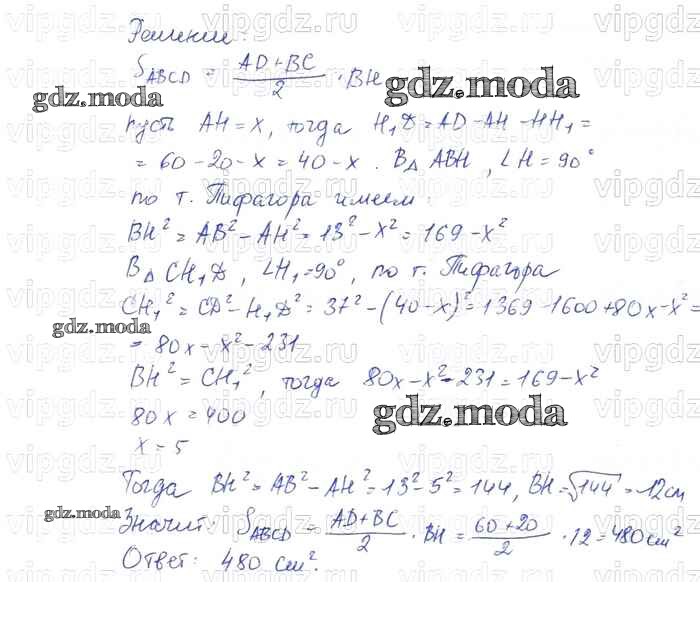 Решение:
S_ABCD = (AD+BC)/2 · BH
gdz.moda
gdz.moda
пусть AH=x, тогда H₁D=AD-AH-HH₁=
=60-20-x=40-x. В△ABH, ∠H=90°
по т. Пифагора имеем:
BH²=AB²-AH²=13²-x²=169-x²
В△CH₁D, ∠H₁=90°, по т. Пифагора
CH₁²=CD²-H₁D²=37²-(40-x)²=1369-1600+80x-x²=
gdz.moda
=80x-x²-231
BH²=CH₁², тогда 80x-x²-231=169-x²
80x=400
gdz.moda
x=5
Тогда BH²=AB²-AH²=13²-5²=144, BH=√144=12см
gdz.moda
Значит: S_ABCD = (AD+BC)/2 · BH = (60+20)/2 · 12=480см²
Ответ: 480 см².
vipgdz.ru